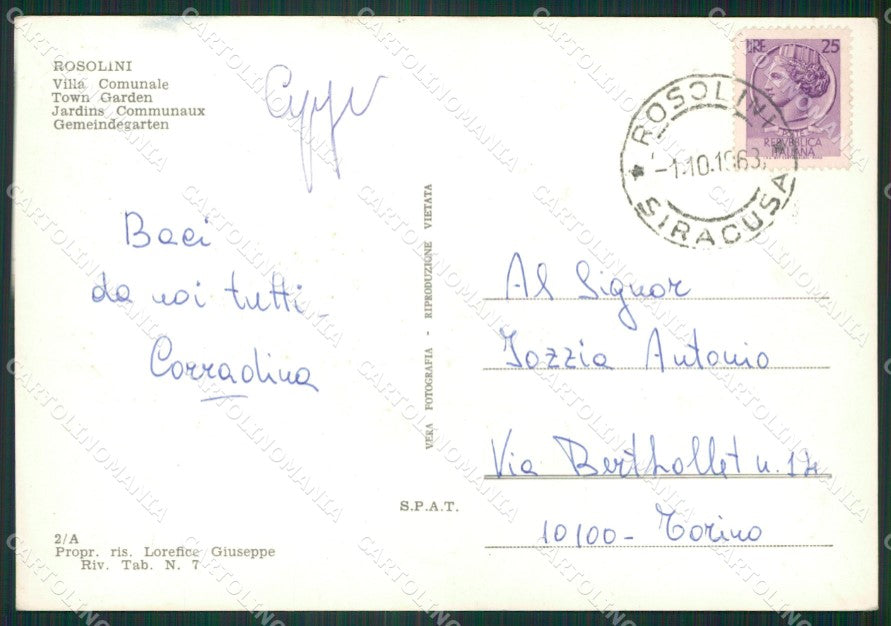 ROSOLINI
Villa Comunale
Town Garden
Jardins Communaux
Gemeindegarten
Baci
da noi tutti.
Corradina
2/A
Propr. ris. Lorefice Giuseppe
Riv. Tab. N. 7
VERA FOTOGRAFIA - RIPRODUZIONE VIETATA
S.P.A.T.
LIRE 25
REPVBBLICA
ITALIANA
ROSOLINI
-1.10.1968
SIRACUSA
Al Signor
Iozzia Antonio
Via Berthollet n. 14
10100 - Torino
CARTOLINOMANIA